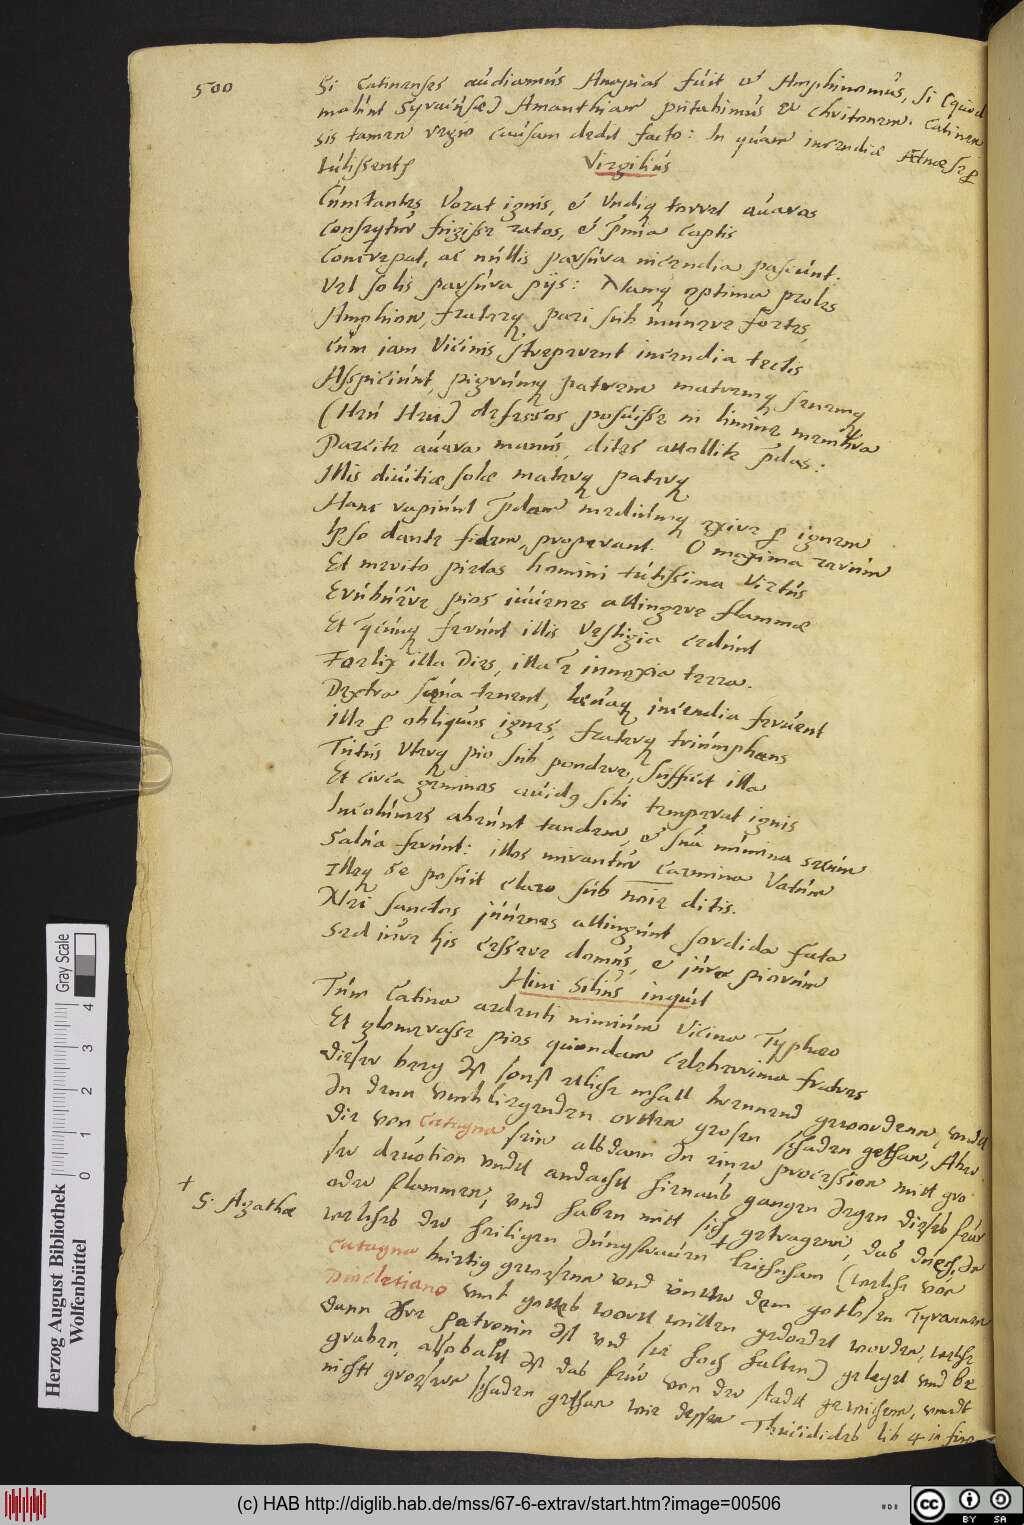 500
Si Catinenses audiamus Anapias fuit et Amphinomus, si (quod
malunt Syracusæ) Amanthiam putabimus et Chritonem. Catinen
sis tamen vigro causam dedit facto: In quam incendiæ Ætnæ se
tulissents
Virgilius
Cunctantes vorat ignis, et undiq torret auaros
Consequitur fugisse ratos, et cum captis
Concrepat, ac nullis parsura incendia pascunt.
Vel solis parsura pijs: Namq optima proles
Amphion, fraterq pari sub munere fortes,
Cum iam vicinis streperent incendia tectis
Aspiciunt, pigrumq patrem matremq senemq
(Heu Heu) defessos posuisse in limine membra
Parcite auara manus, dites attollite pdas:
Illis diuitiæ solæ materq paterq
Hanc rapiunt pdam mediumq exire p ignem
Ipso dante fidem, properant. O maxima rerum
Et merito pietas homini tutissima virtus
Erubuere pios iuuenes attingere flammæ
Et qcunq ferunt illis vestigia cedunt
Foelix illa Dies, illa e innoxia terra.
Dextra sæua tenent, læuaq incendia feruent
Ille p obliquos ignes, fraterq triumphans
Tutus uterq pio sub pondere, sufficit illa
Et circa geminos auidq sibi temperat ignis
Incolumes abeunt tandem, et sua numina secum
Salua ferunt: illos mirantur carmina vatum
Illeq se posuit claro sub noie ditis.
Nec sanctos iuuenes attingunt sordida fata
Sed iure his cessere domus, et iura piorum
Hinc Silius inquit
Tum Catina ardenti nimium vicina Typhæo
Et generasse pios quondam celeberrima fratres
Dieser berg ist sonst etliche mhall brennend gewordenn, undt
In denn umbliegenden ortten grosen schaden gethan, Aber
die von Catagna sein alsdann In einer procession mitt gro
ser deuotion undt andacht hienaus gangen gegen dieses feur
oder flammen, und haben mitt sich getragenn, das durch In
S. Agathæ
welches der heiligen Jungkfrauen + leichnham (welche von
Catagna burtig gewesenn und unter dem gotlosen Tyrannen
Diocletiano umb gottes wortt willen gedodet worden, welche
dann Ihre patronin ist und sie hoch halten) gelegt und be
graben, alsobaldt ist das feur von der stadt gewichenn, unndt
nicht grosser schaden gethan wie dessen Thucidides lib 4 in fine
Herzog August Bibliothek
Wolfenbüttel
0 1 2 3 4
Gray Scale
(c) HAB http://diglib.hab.de/mss/67-6-extrav/start.htm?image=00506
HAB
cc BY SA